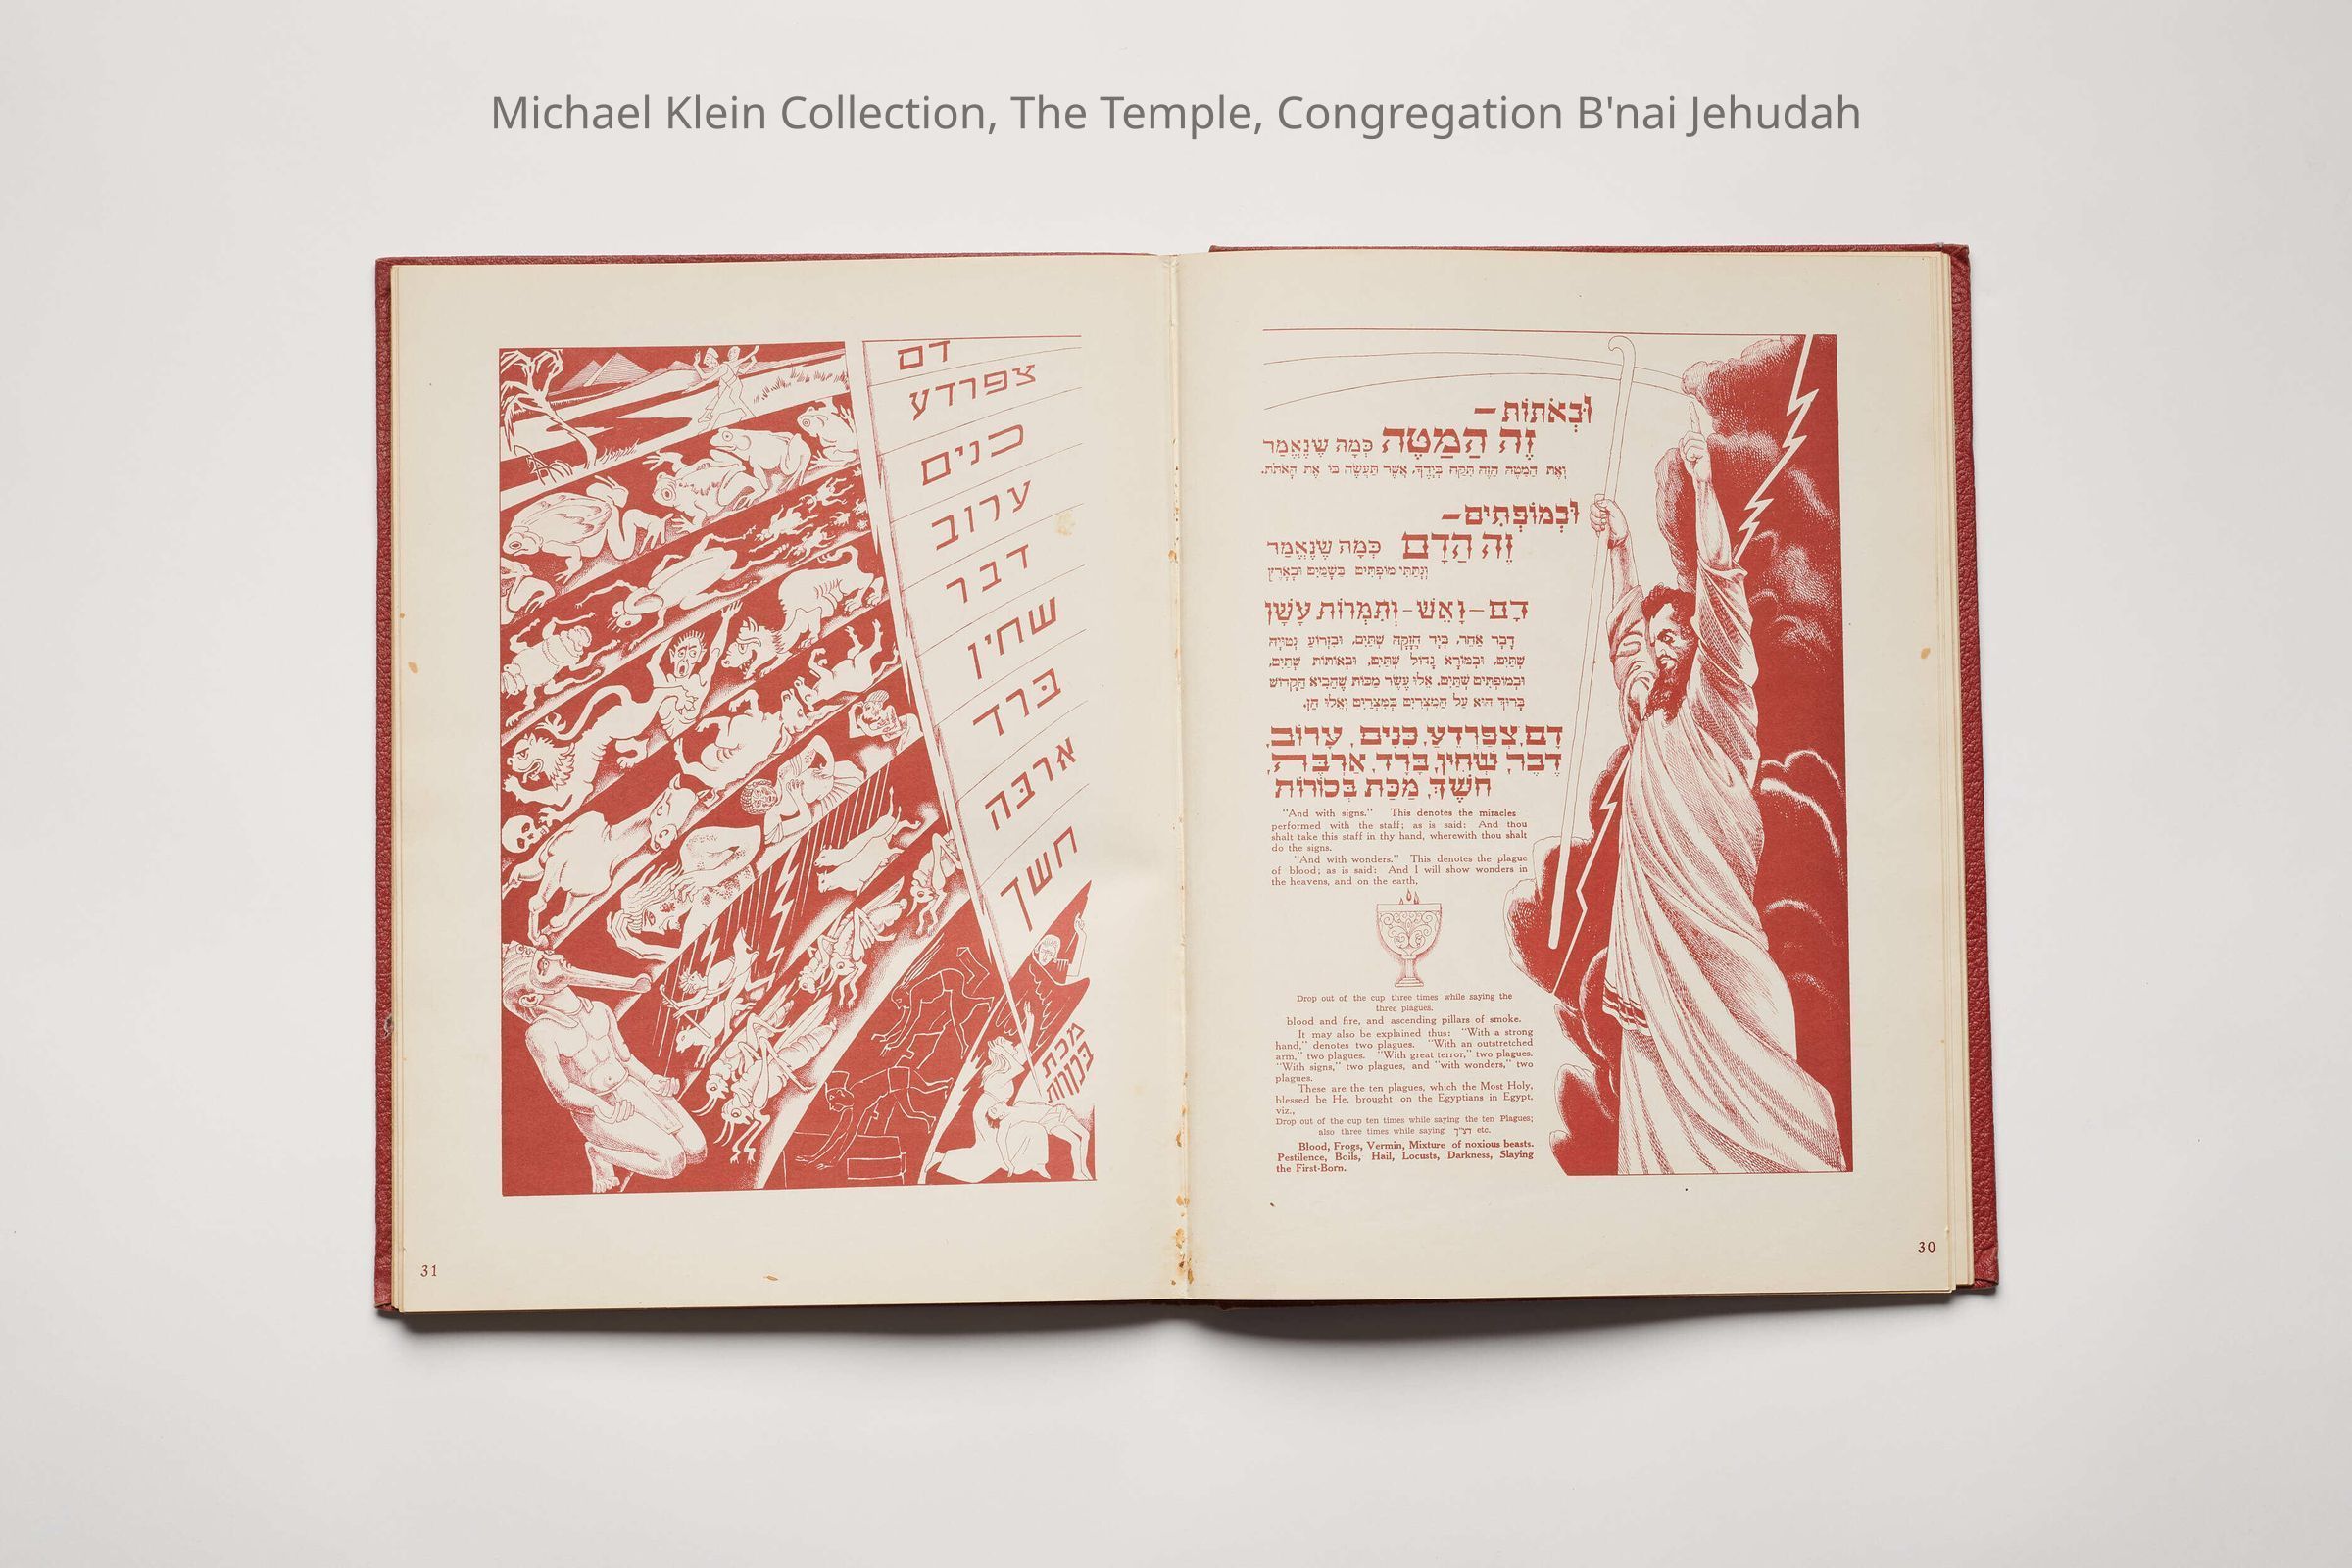 Michael Klein Collection, The Temple, Congregation B'nai Jehudah
וּבְאֹתוֹת–
זֶה הַמַטֶה כְּמָה שֶׁנֶאֱמַר
וְאֶת הַמַטֶה הַזֶה תִּקַח בְּיָדֶךָ, אֲשֶׁר תַּעֲשֶׂה בּוֹ אֶת הָאֹתֹת.
וּבְמוֹפְתִים–
זֶה הַדָם כְּמָה שֶׁנֶאֱמַר
וְנָתַתִּי מוֹפְתִים בַּשָׁמַיִם וּבָאָרֶץ
דָם–וָאֵשׁ–וְתִמְרוֹת עָשָׁן
דָבָר אַחֵר, בְּיָד חֲזָקָה שְׁתַּיִם, וּבִזְרוֹעַ נְטוּיָה
שְׁתַּיִם, וּבְמוֹרָא גָדוֹל שְׁתַּיִם, וּבְאוֹתוֹת שְׁתַּיִם,
וּבְמוֹפְתִים שְׁתַּיִם, אֵלוּ עֶשֶׂר מַכּוֹת שֶׁהֵבִיא הַקָדוֹשׁ
בָּרוּךְ הוּא עַל הַמִצְרִים בְּמִצְרַיִם וְאֵלוּ הֵן.
דָם, צְפַרְדֵעַ, כִּנִים, עָרוֹב,
דֶבֶר, שְׁחִין, בָּרָד, אַרְבֶּה,
חֹשֶׁךְ, מַכַּת בְּכוֹרוֹת
"And with signs." This denotes the miracles
performed with the staff; as is said: And thou
shalt take this staff in thy hand, wherewith thou shalt
do the signs.
"And with wonders." This denotes the plague
of blood; as is said: And I will show wonders in
the heavens, and on the earth,
Drop out of the cup three times while saying the
three plagues.
blood and fire, and ascending pillars of smoke.
It may also be explained thus: "With a strong
hand," denotes two plagues. "With an outstretched
arm," two plagues. "With great terror," two plagues.
"With signs," two plagues, and "with wonders," two
plagues.
These are the ten plagues, which the Most Holy,
blessed be He, brought on the Egyptians in Egypt,
viz.,
Drop out of the cup ten times while saying the ten Plagues;
also three times while saying דצ"ך etc.
Blood, Frogs, Vermin, Mixture of noxious beasts.
Pestilence, Boils, Hail, Locusts, Darkness, Slaying
the First-Born.
30
דם
צפרדע
כנים
ערוב
דבר
שחין
ברד
ארבה
חשך
מכת
בכורות
31